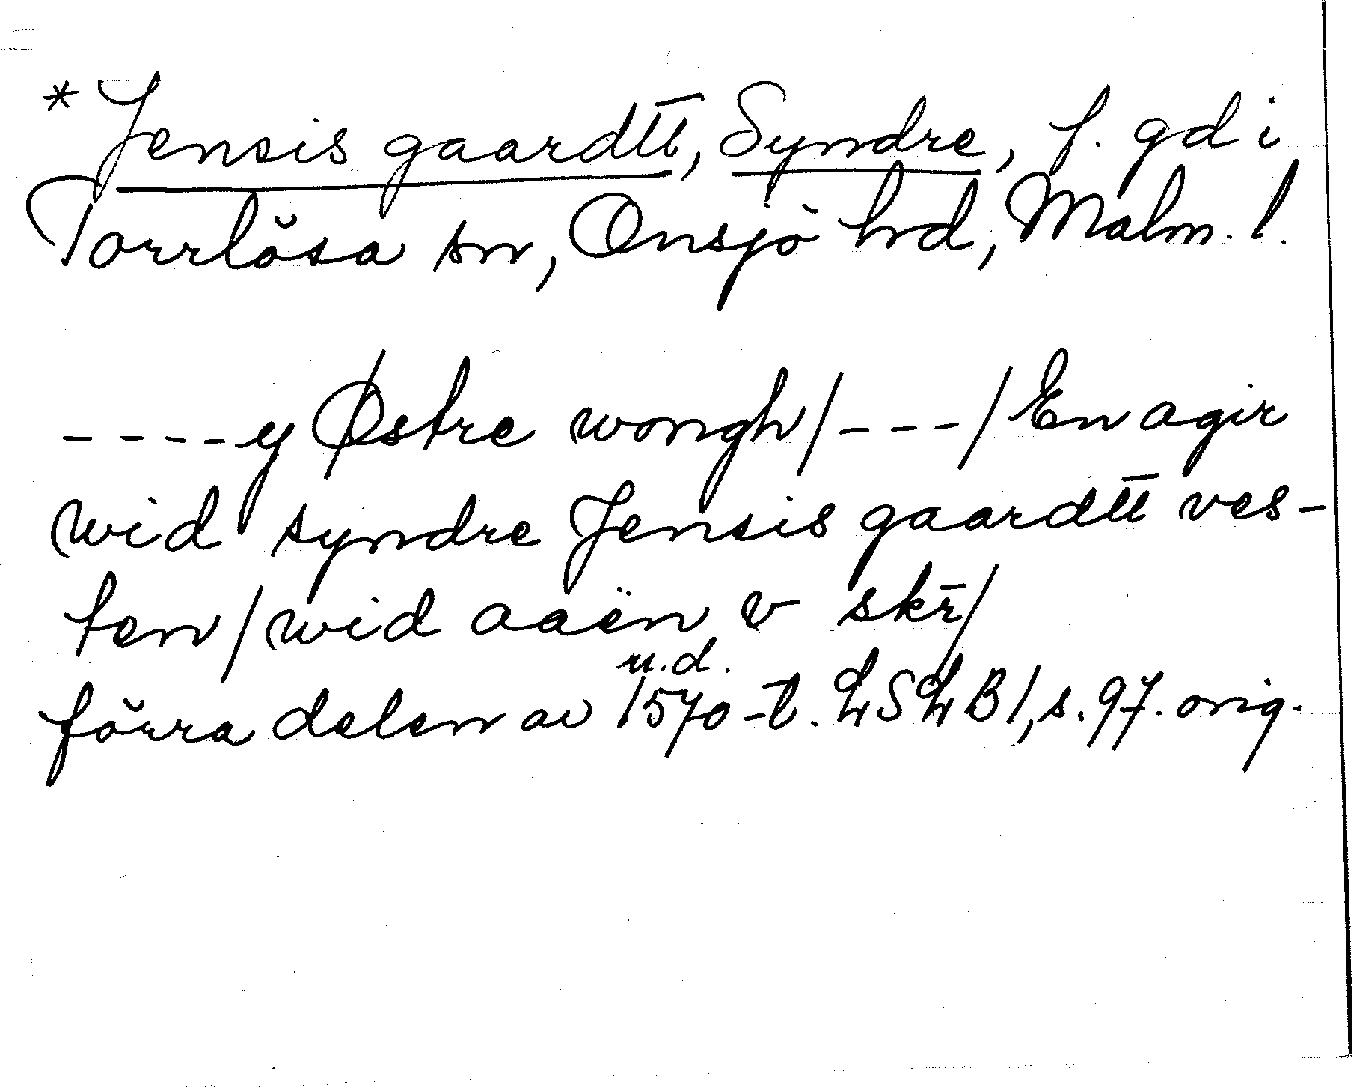 * Jensis gaardtt, Syndre, f. gd i
Torrlösa sn, Onsjö hrd, Malm. l.
----y Østre wongh/---/En agir
wid syndre Jensis gaardtt ves-
ten/wid aaën v skr̄/
u.d.
förra delen av 1570-t. LSLB1, s. 97. orig.